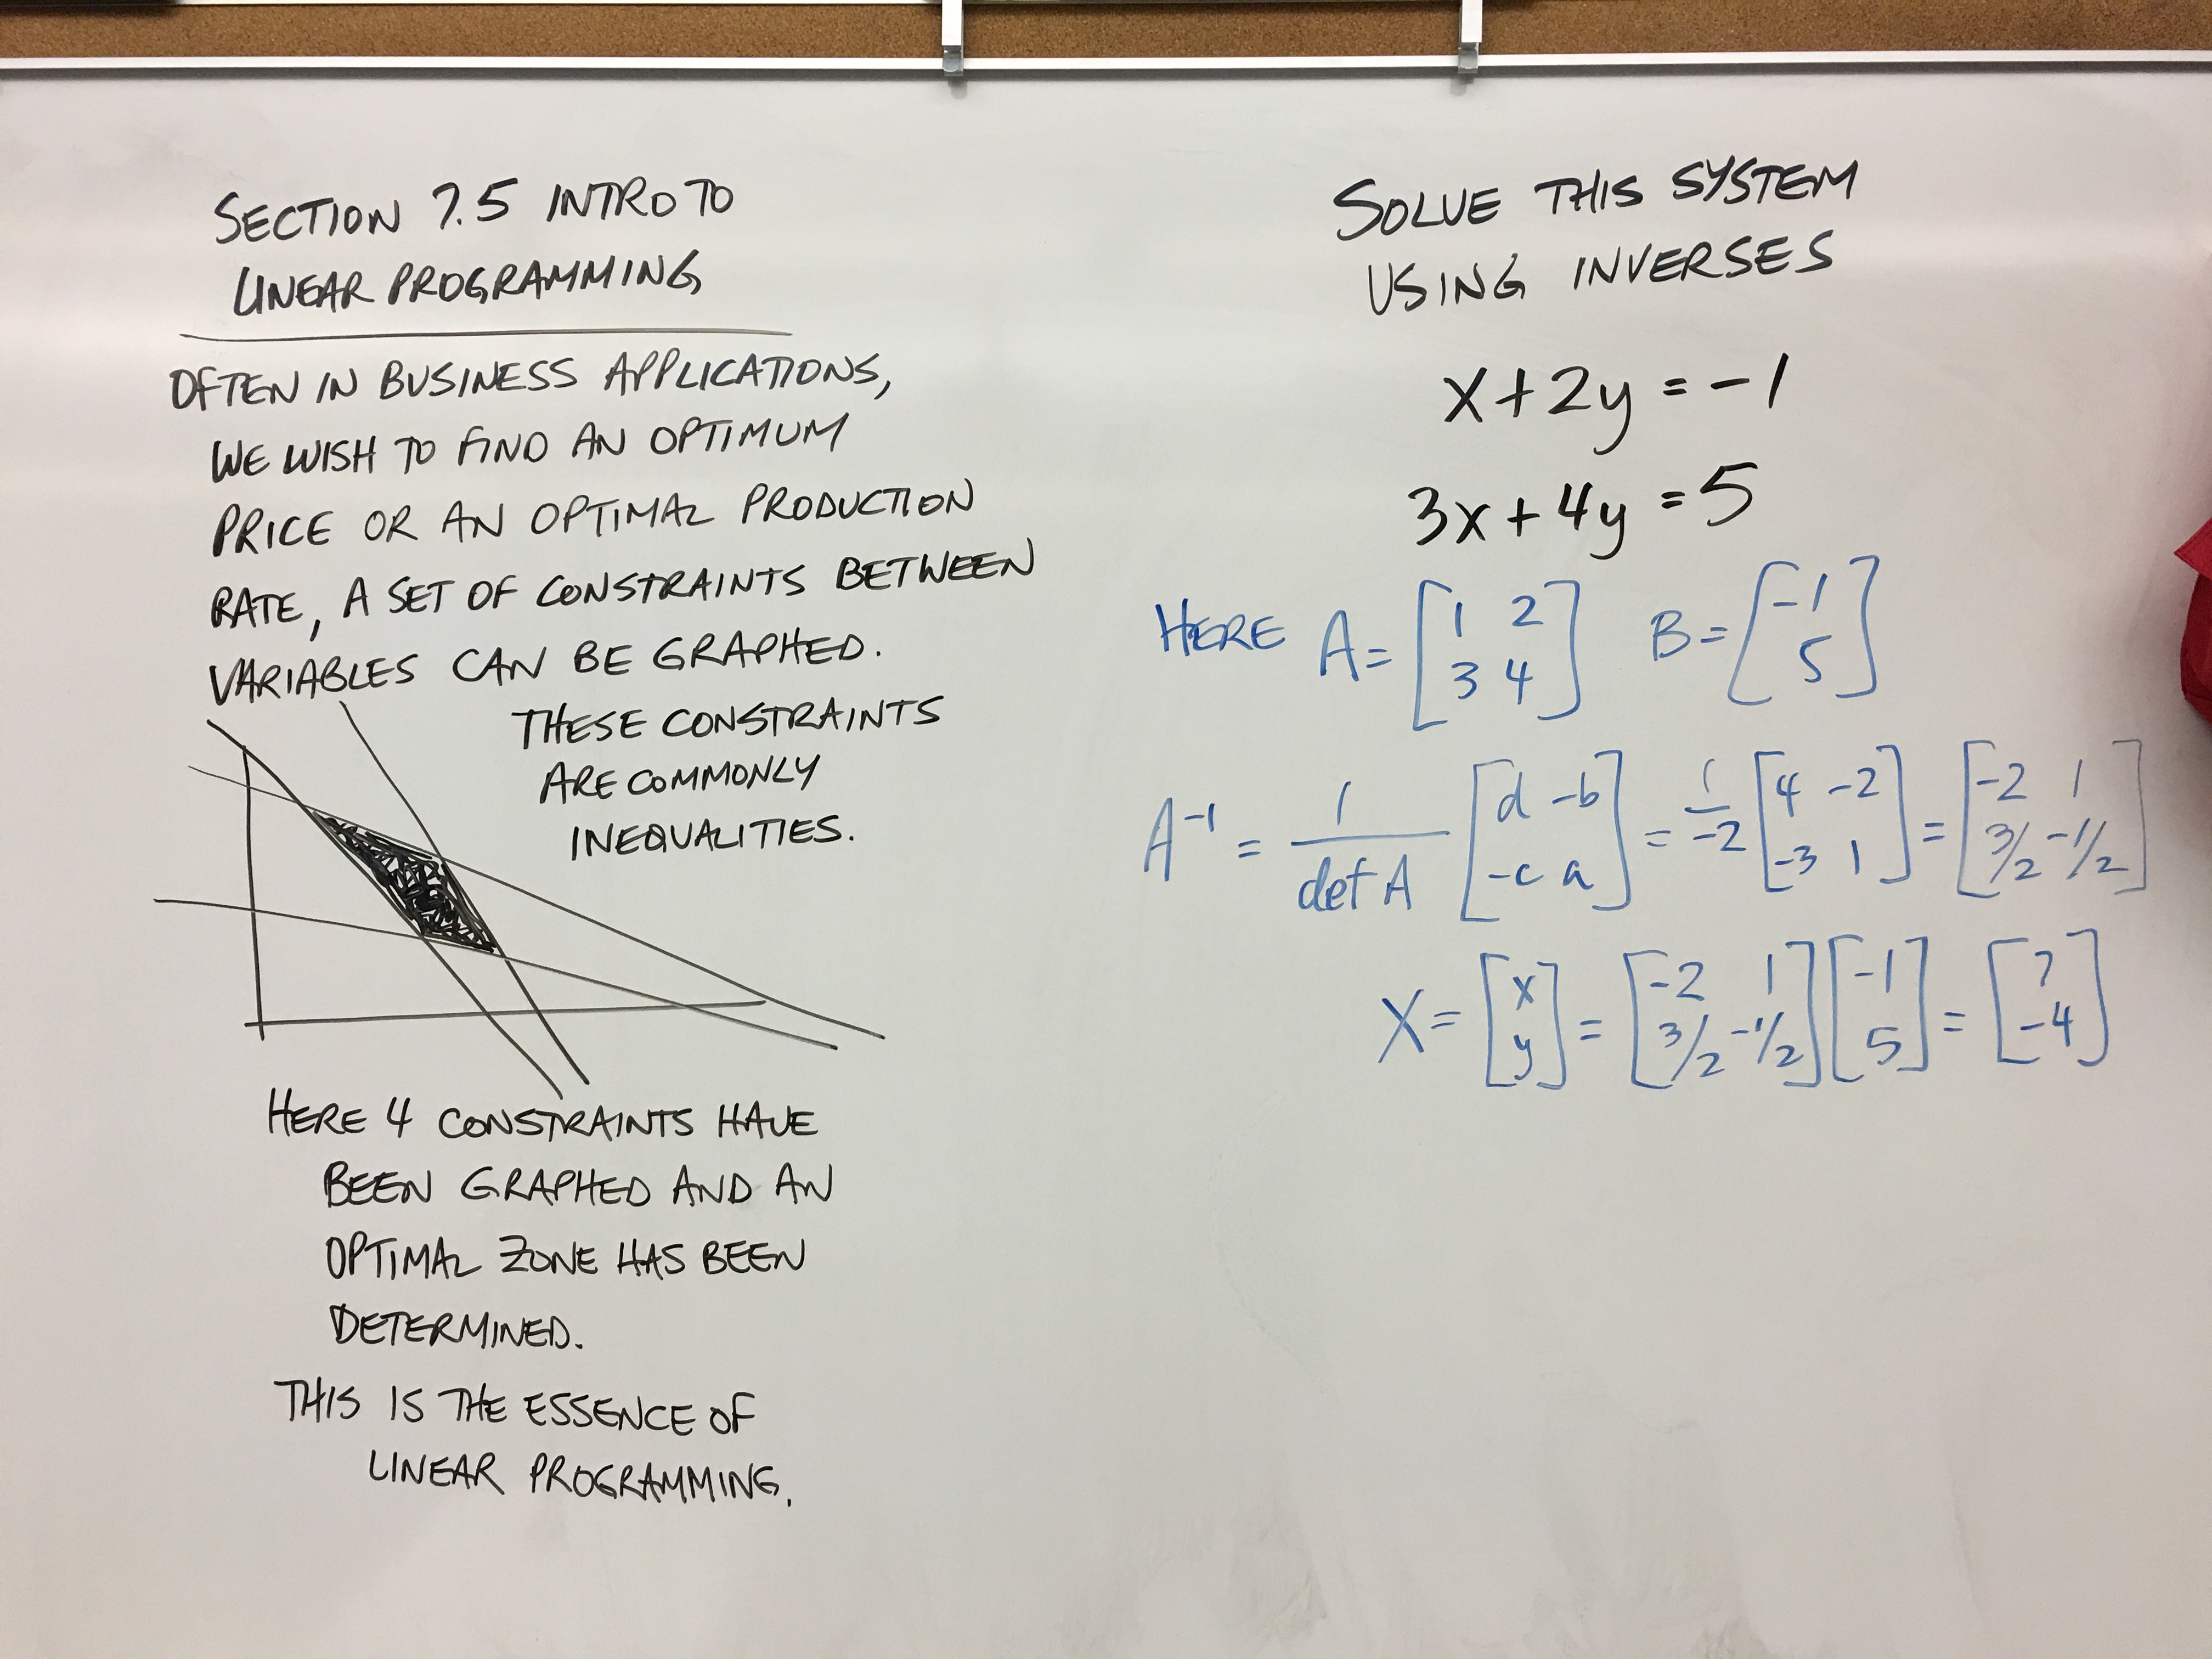 SECTION 7.5 INTRO TO
LINEAR PROGRAMMING
OFTEN IN BUSINESS APPLICATIONS,
WE WISH TO FIND AN OPTIMUM
PRICE OR AN OPTIMAL PRODUCTION
RATE, A SET OF CONSTRAINTS BETWEEN
VARIABLES CAN BE GRAPHED.
THESE CONSTRAINTS
ARE COMMONLY
INEQUALITIES.
HERE 4 CONSTRAINTS HAVE
BEEN GRAPHED AND AN
OPTIMAL ZONE HAS BEEN
DETERMINED.
THIS IS THE ESSENCE OF
LINEAR PROGRAMMING.
SOLVE THIS SYSTEM
USING INVERSES
x+2y=-1
3x+4y=5
HERE A=[1 2; 3 4] B=[-1; 5]
A⁻¹ = 1/det A [d -b; -c a] = 1/-2 [4 -2; -3 1] = [-2 1; 3/2 -1/2]
X=[x; y] = [-2 1; 3/2 -1/2][-1; 5] = [7; -4]